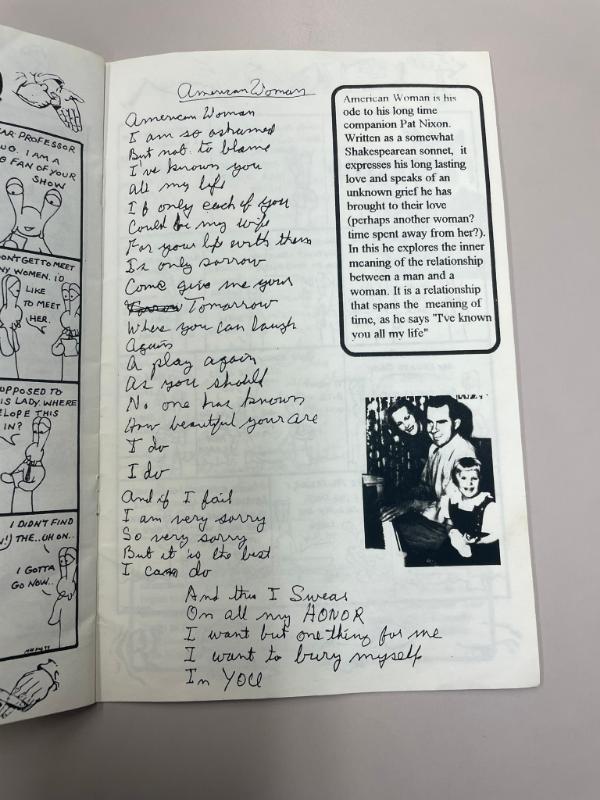 AR PROFESSOR
UG. I AM A
G FAN OF YOUR
SHOW
DON'T GET TO MEET
NY WOMEN. I'D
LIKE
TO MEET
HER.
UPPOSED TO
IS LADY. WHERE
ELOPE THIS
IN?
I DIDN'T FIND
THE..UH ON..
I GOTTA
GO NOW..
American Woman
American Woman
I am so ashamed
But not to blame
I've known you
all my life
If only each of you
Could be my wife
For your life with them
Is only sorrow
Come give me your
Tomorrow
Where you can laugh
Again
A play again
As you should
No one has known
How beautiful your are
I do
I do
And if I fail
I am very sorry
So very sorry
But it is the best
I can do
And this I Swear
On all my HONOR
I want but one thing for me
I want to bury myself
In YOU
American Woman is his
ode to his long time
companion Pat Nixon.
Written as a somewhat
Shakespearean sonnet, it
expresses his long lasting
love and speaks of an
unknown grief he has
brought to their love
(perhaps another woman?
time spent away from her?).
In this he explores the inner
meaning of the relationship
between a man and a
woman. It is a relationship
that spans the meaning of
time, as he says "I've known
you all my life"